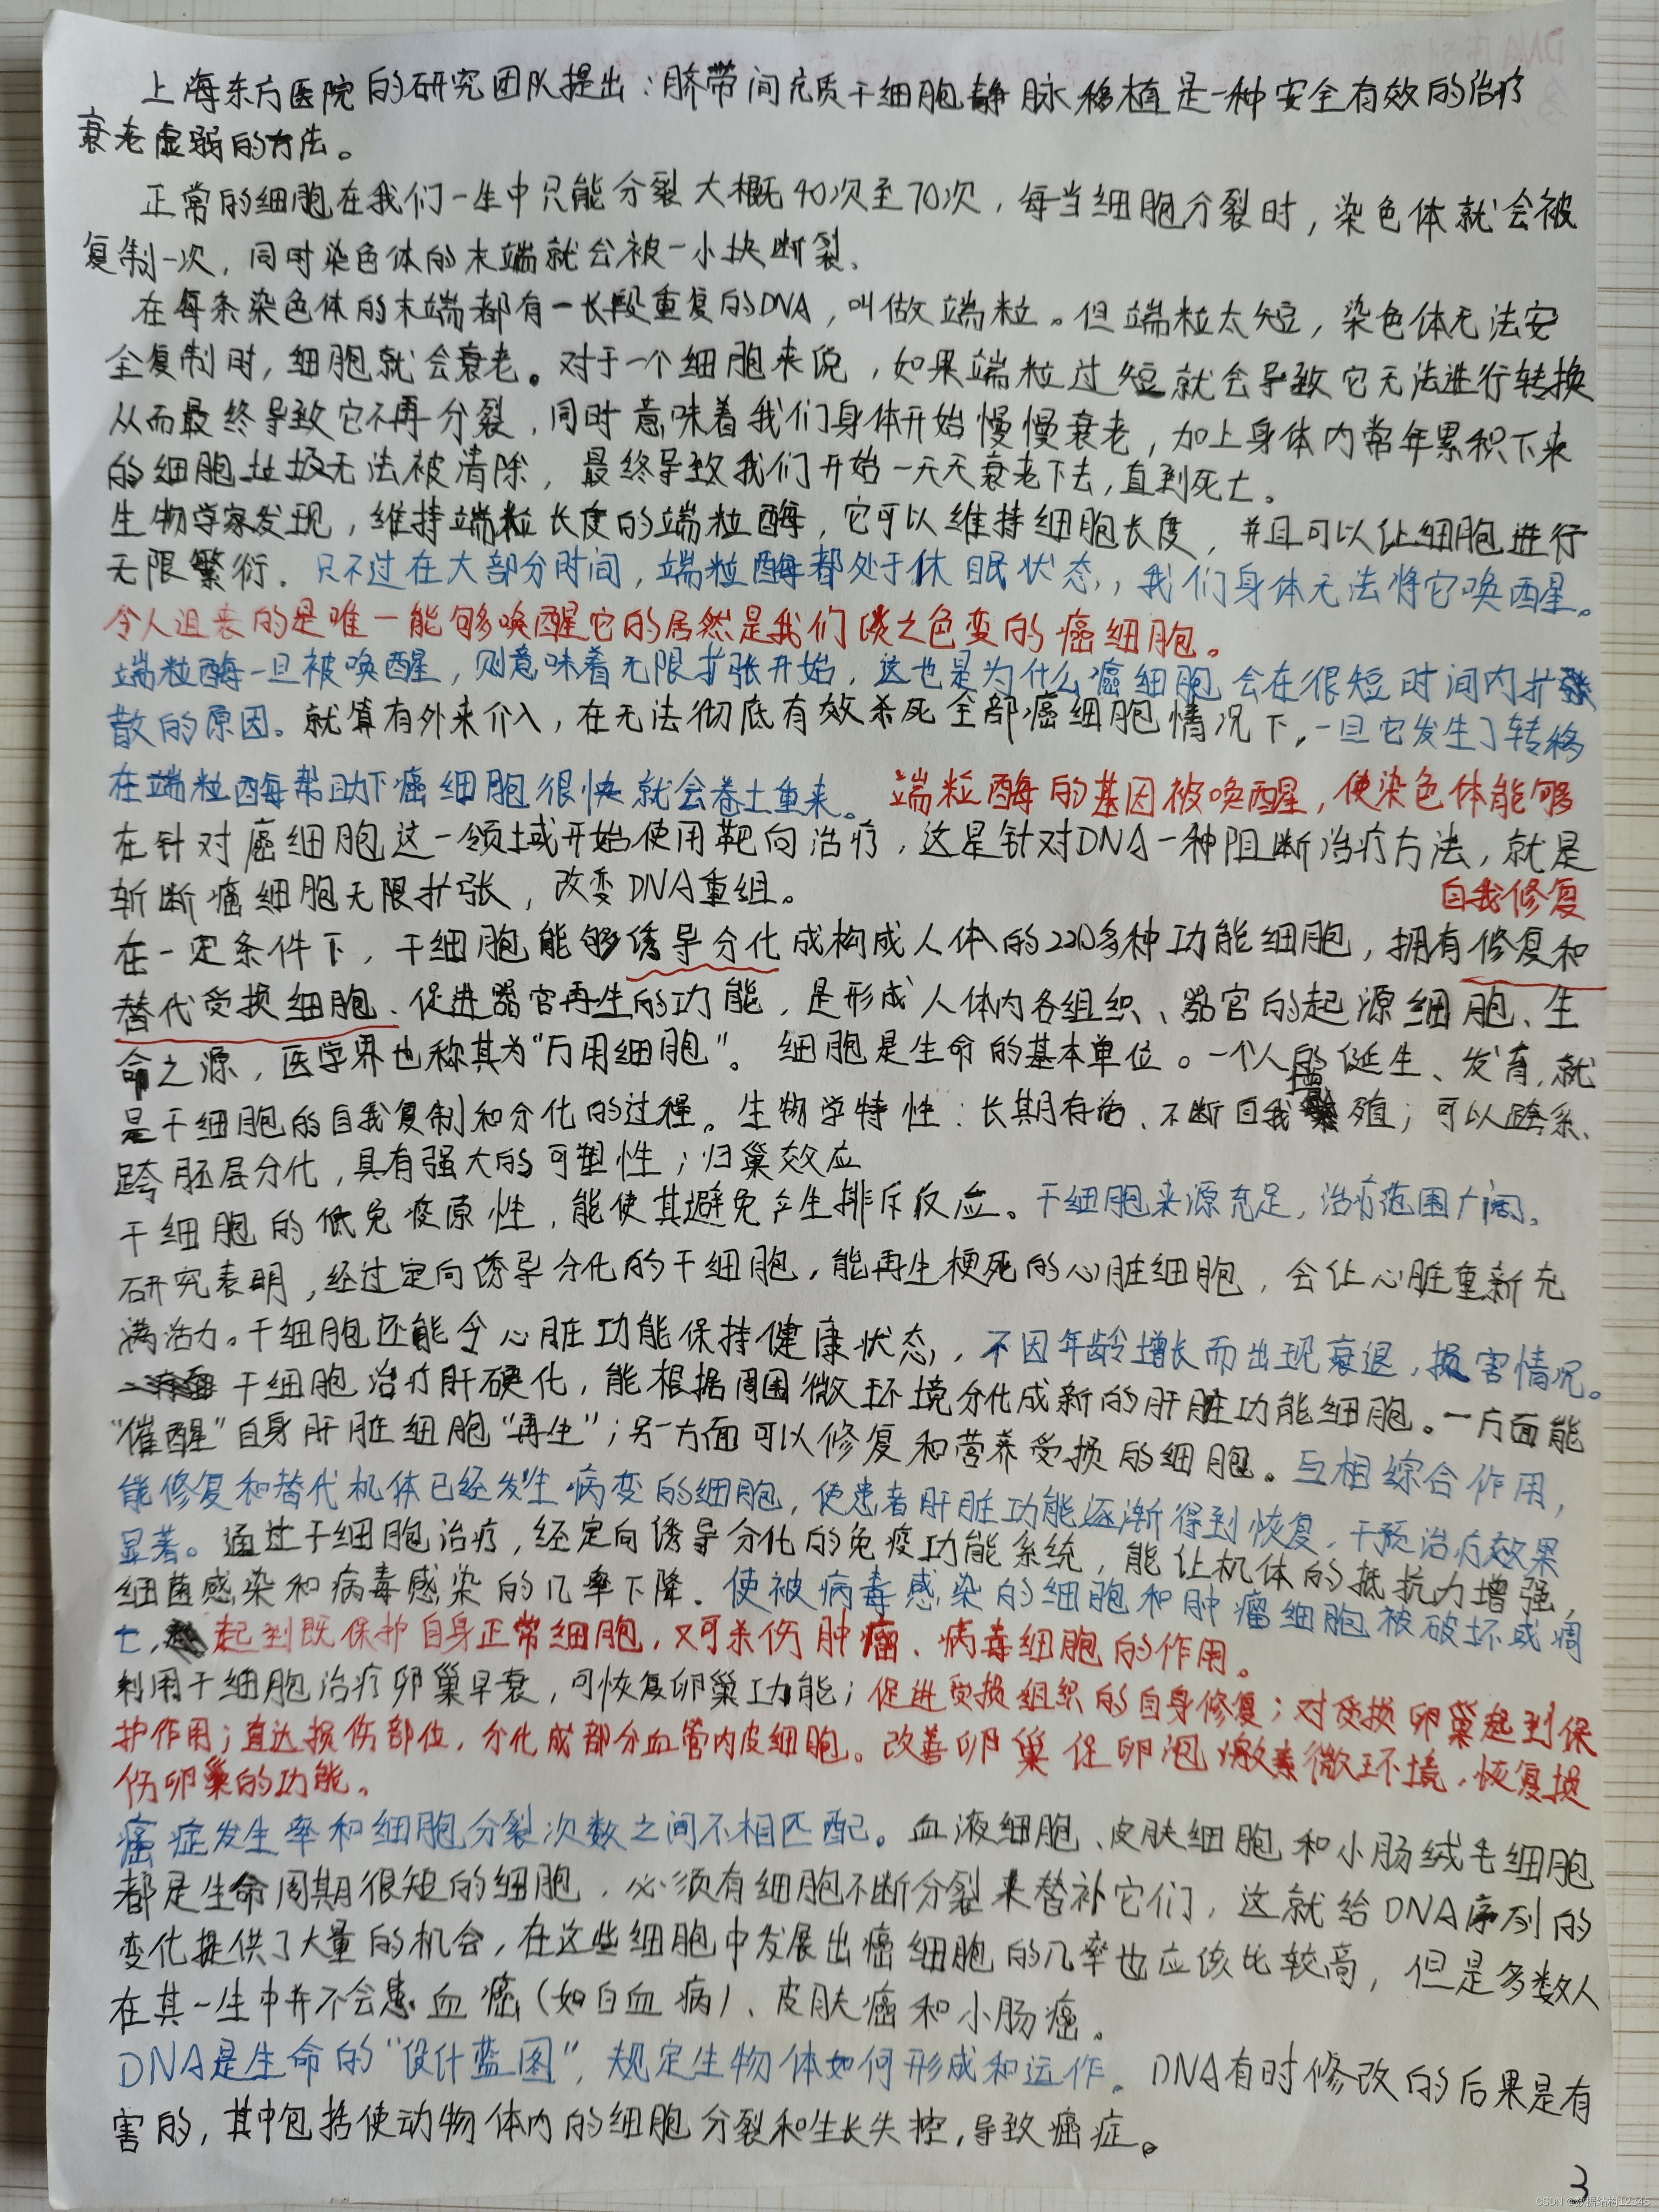 上海东方医院的研究团队提出：脐带间充质干细胞静脉移植是一种安全有效的治疗
衰老虚弱的方法。
正常的细胞在我们一生中只能分裂大概40次至70次，每当细胞分裂时，染色体就会被
复制一次，同时染色体的末端就会被一小块断裂、
在每条染色体的末端都有一长段重复的DNA，叫做端粒。但端粒太短，染色体无法安
全复制时，细胞就会衰老。对于一个细胞来说，如果端粒过短就会导致它无法进行转换
从而最终导致它不再分裂，同时意味着我们身体开始慢慢衰老，加上身体内常年累积下来
的细胞垃圾无法被清除，最终导致我们开始一天天衰老下去，直到死亡。
生物学家发现，维持端粒长度的端粒酶，它可以维持细胞长度，并且可以让细胞进行
无限繁衍．只不过在大部分时间，端粒酶都处于休眠状态，，我们身体无法将它唤醒。
令人沮丧的是唯一能够唤醒它的居然是我们谈之色变的癌细胞。
端粒酶一旦被唤醒，则意味着无限扩张开始，这也是为什么癌细胞会在很短时间内扩
散的原因。就算有外来介入，在无法彻底有效杀死全部癌细胞情况下，一旦它发生了转移
在端粒酶帮助下癌细胞很快就会卷土重来。端粒酶的基因被唤醒，使染色体能够
在针对癌细胞这一领域开始使用靶向治疗，这是针对DNA一种阻断治疗方法，就是
斩断癌细胞无限扩张，改变DNA重组。
自我修复
在一定条件下，干细胞能够诱导分化成构成人体的220多种功能细胞，拥有修复和
替代受损细胞、促进器官再生的功能，是形成人体内各组织、器官的起源细胞、生
命之源，医学界也称其为“万用细胞”。细胞是生命的基本单位。一个人的诞生、发育，就
是干细胞的自我复制和分化的过程。生物学特性：长期存活、不断自我增殖；可以跨系、
跨胚层分化，具有强大的可塑性；归巢效应
干细胞的低免疫原性，能使其避免产生排斥反应。干细胞来源充足，治疗范围广阔。
研究表明，经过定向诱导分化的干细胞，能再生梗死的心脏细胞，会让心脏重新充
满活力。干细胞还能令心脏功能保持健康状态，，不因年龄增长而出现衰退，损害情况。
干细胞治疗肝硬化，能根据周围微环境分化成新的肝脏功能细胞。一方面能
“催醒”自身肝脏细胞“再生”；另一方面可以修复和营养受损的细胞。互相综合作用，
能修复和替代机体已经发生病变的细胞，使患者肝脏功能逐渐得到恢复，干预治疗效果
显著。通过干细胞治疗，经定向诱导分化的免疫功能系统，能让机体的抵抗力增强，
细菌感染和病毒感染的几率下降．使被病毒感染的细胞和肿瘤细胞被破坏或凋
亡，起到既保护自身正常细胞，又可杀伤肿瘤、病毒细胞的作用。
利用干细胞治疗卵巢早衰，可恢复卵巢功能；促进受损组织的自身修复；对受损卵巢起到保
护作用；直达损伤部位，分化成部分血管内皮细胞。改善卵巢促卵泡激素微环境，恢复损
伤卵巢的功能。
癌症发生率和细胞分裂次数之间不相匹配。血液细胞、皮肤细胞和小肠绒毛细胞
都是生命周期很短的细胞，必须有细胞不断分裂来替补它们，这就给DNA序列的
变化提供了大量的机会，在这些细胞中发展出癌细胞的几率也应该比较高，但是多数人
在其一生中并不会患血癌（如白血病）、皮肤癌和小肠癌。
DNA是生命的“设计蓝图”，规定生物体如何形成和运作。DNA有时修改的后果是有
害的，其中包括使动物体内的细胞分裂和生长失控，导致癌症。
3
CSDN @数据结构12345